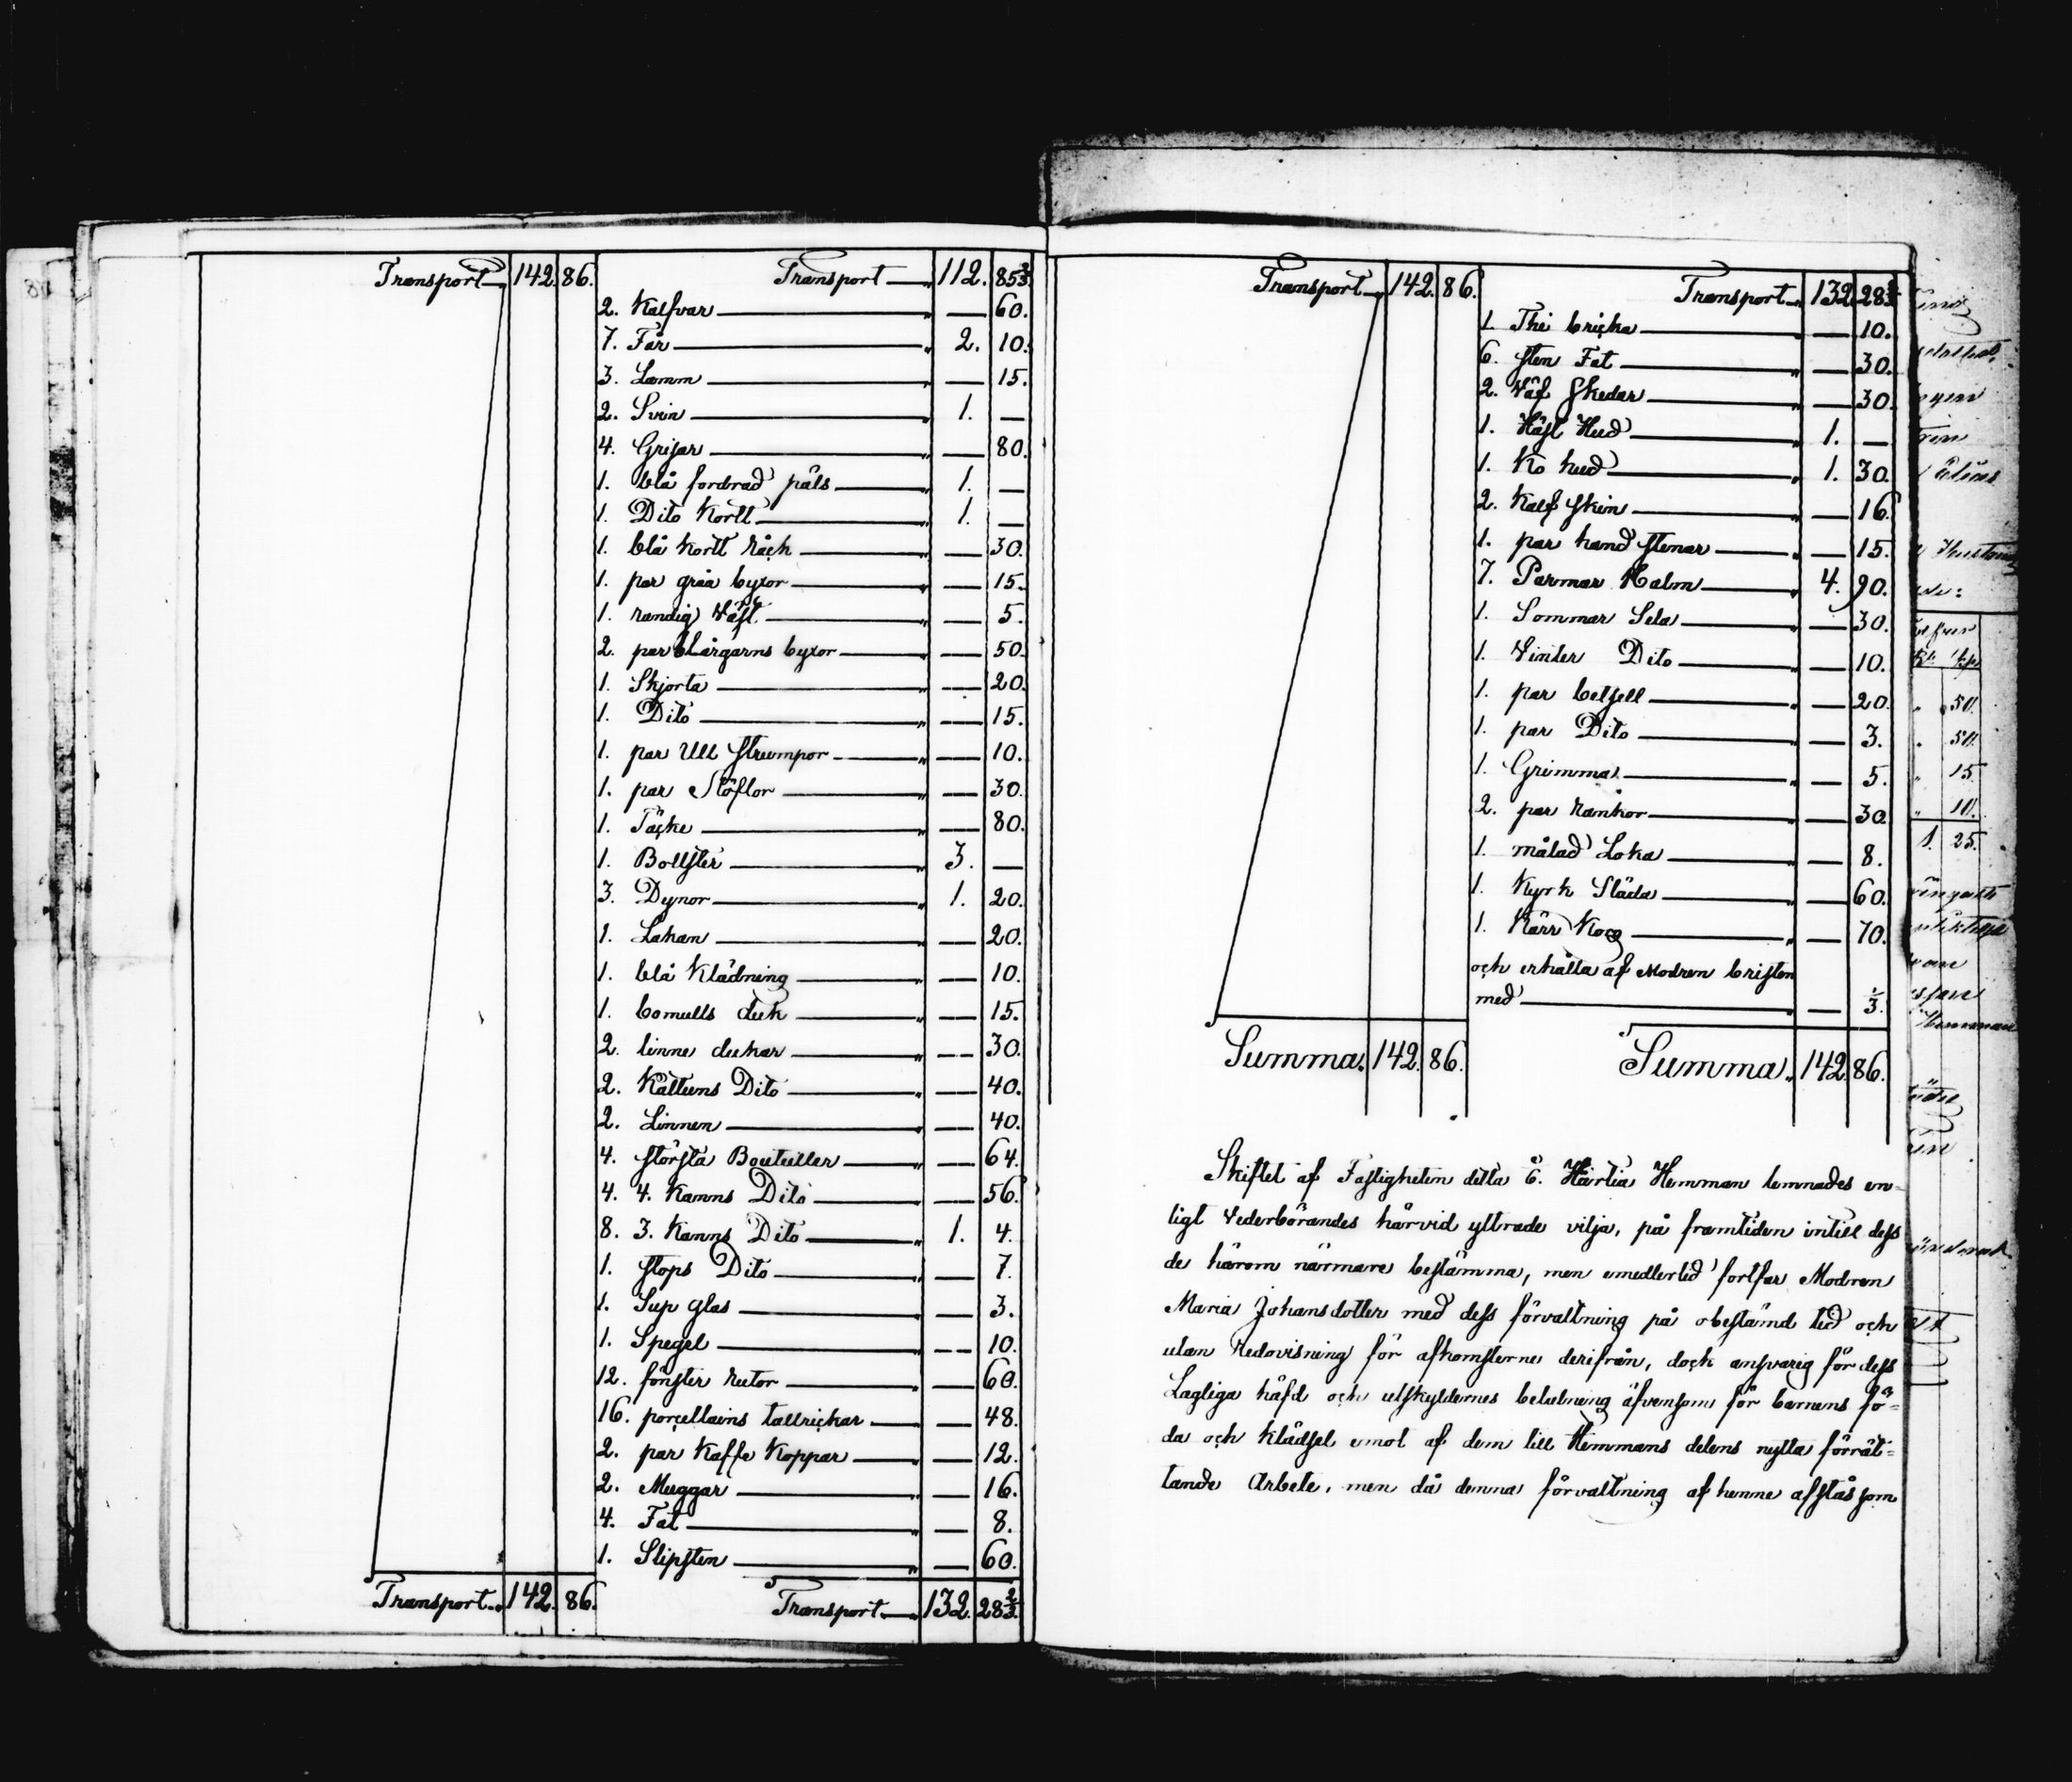 Transport 142. 86. Transport 112. 85 2/3.
2. Kalfvar — 60.
7. Får 2. 10.
3. Lamm — 15.
2. Svin 1. —
4. Grisar — 80.
1. blå fodrad päls 1. —
1. Dito Kortt 1. —
1. blå Kortt Råck — 30.
1. par gråa byxor — 15.
1. randig Väst — 5.
2. par blårgarns byxor — 50.
1. Skjorta — 20.
1. Dito — 15.
1. par Ull strumpor — 10.
1. par Stöflor — 30.
1. Täcke — 80.
1. Bollster 3. —
3. Dynor 1. 20.
1. Lakan — 20.
1. blå Klädning — 10.
1. bomulls duk — 15.
2. linne dukar — 30.
2. Kattuns Dito — 40.
2. Linnen — 40.
4. största Bouteiller — 64.
4. 4. Kanns Dito — 56.
8. 3. Kanns Dito 1. 4.
1. stops Dito — 7.
1. Sup glas — 3.
1. Spegel — 10.
12. fönster rutor — 60.
16. porcellains tallrickar — 48.
2. par Kaffe Koppar — 12.
2. Muggar — 16.
4. Fat — 8.
1. Slipsten — 60.
Transport 142. 86. Transport 132. 28 2/3.
Transport 142. 86. Transport 132. 28 2/3
1. The bricka — 10.
6. sten Fat — 30.
2. Väf skedar — 30.
1. Häst Hud 1. —
1. Ko hud 1. 30.
2. Kalf skin — 16.
1. par hand stenar — 15.
7. Parmar Halm 4. 90.
1. Sommar Sela — 30.
1. Vinter Dito — 10.
1. par betsell — 20.
1. par Dito — 3.
1. Grimma — 5.
2. par rankor — 30.
1. målad Loka — 8.
1. Kyrk Släda — 60.
1. Kärr Korg — 70.
och erhålla af Modren bristen
med — 1/3.
Summa. 142. 86. Summa. 142. 86.
Skiftet af Fastigheten detta Ö. Härtia Hemman lemnades en-
ligt Vederbörandes härvid yttrade vilja, på framtiden intill dess
de härom närmare bestämma, men emedlertid fortfar Modren
Maria Johansdotter med dess förvaltning på obestämd tid och
utan Redovisning för afkomsterne derifrån, dock ansvarig för dess
Lagliga häfd och utskyldernes betalning äfvensom för barnens fö=
da och Klädsel emot af dem till Hemmans delens nytta förrät=
tande Arbete, men då denna förvaltning af henne afstås som
50.
50.
15.
10.
1. 25.